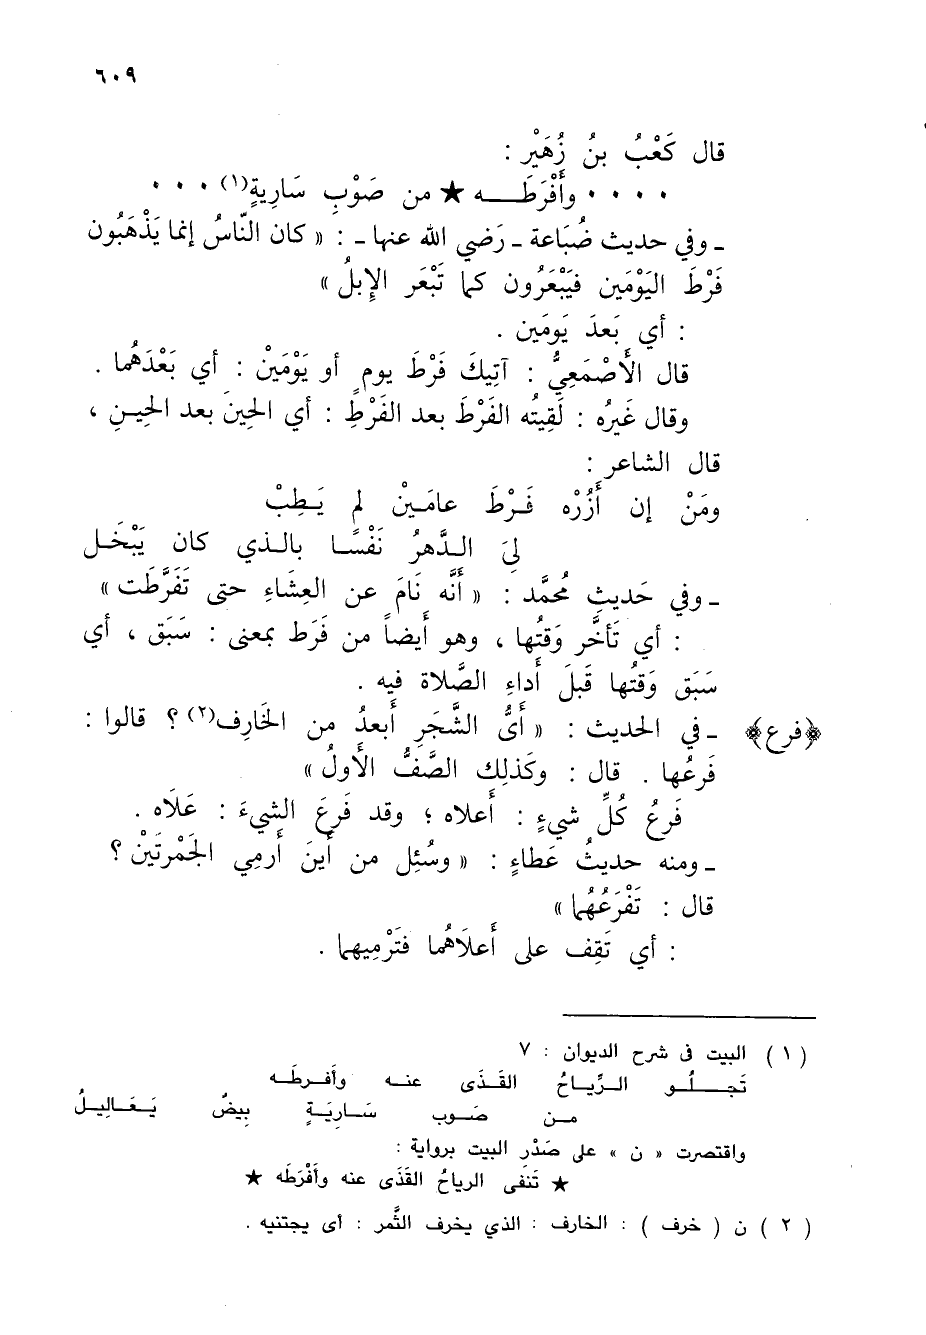 ٦٠٩
قال كَعْبُ بنُ زُهَيْر :
٠ ٠ ٠ ٠ وأَفْرَطَـــه ★ من صَوْبِ سَارِيةٍ(١) ٠ ٠ ٠
ـ وفي حديث ضُبَاعة ـ رَضي الله عنها ـ : « كان النّاسُ إنما يَذْهَبُون
فَرْطَ اليَوْمَين فيَبْعَرُون كما تَبْعَر الإِبلُ »
: أي بَعدَ يَومَين .
قال الأَصْمَعِيُّ : آتِيكَ فَرْطَ يوم أو يَوْمَيْن : أي بَعْدَهُما .
وقال غَيرُه : لَقِيتُه الفَرْطَ بعد الفَرْطِ : أي الحِينَ بعد الحِيـنِ ،
قال الشاعر :
ومَنْ إن أَزُرْه فَـرْطَ عامَـيْن لم يَـطِبْ
لِيَ الـدَّهرُ نَفْسًـا بالـذي كان يَبْخَـل
ـ وفي حَديثِ مُحمَّد : « أنَّه نَامَ عن العِشَاءِ حتى تَفَرَّطَت »
: أي تأخَّر وَقتُها ، وهو أيضاً من فَرَط بمعنى : سَبَق ، أي
سَبَق وَقتُها قبلَ أداءِ الصَّلاة فيه .
﴿فرع﴾ ـ في الحديث : « أىُّ الشَّجَر أبعدُ من الخَارِف(٢) ؟ قالوا :
فَرعُها . قال : وكَذلِك الصَّفُّ الأَولُ »
فَرعُ كُلِّ شيءٍ : أعلاه ؛ وقد فَرعَ الشيءَ : عَلَاه .
ـ ومنه حديثُ عَطاءٍ : « وسُئِل من أينَ أَرمِي الجَمْرتَيْن ؟
قال : تَفْرَعُهُما »
: أي تَقِف على أَعلاَهُما فتَرْمِيهما .
( ١ ) البيت فى شرح الديوان : ٧
تَجــلُــو الـرِّيـاحُ القَـذَى عنــه وأَفـرطَـه
مــن صَــوب سَــاريَــةٍ بِيضٌ يَـعَـالِيـلُ
واقتصرت « ن » على صَدْر البيت برواية :
★ تَنفى الرياحُ القَذَى عنه وأفْرَطَه ★
( ٢ ) ن ( خرف ) : الخارف : الذي يخرف الثَّمر : أى يجتنيه .